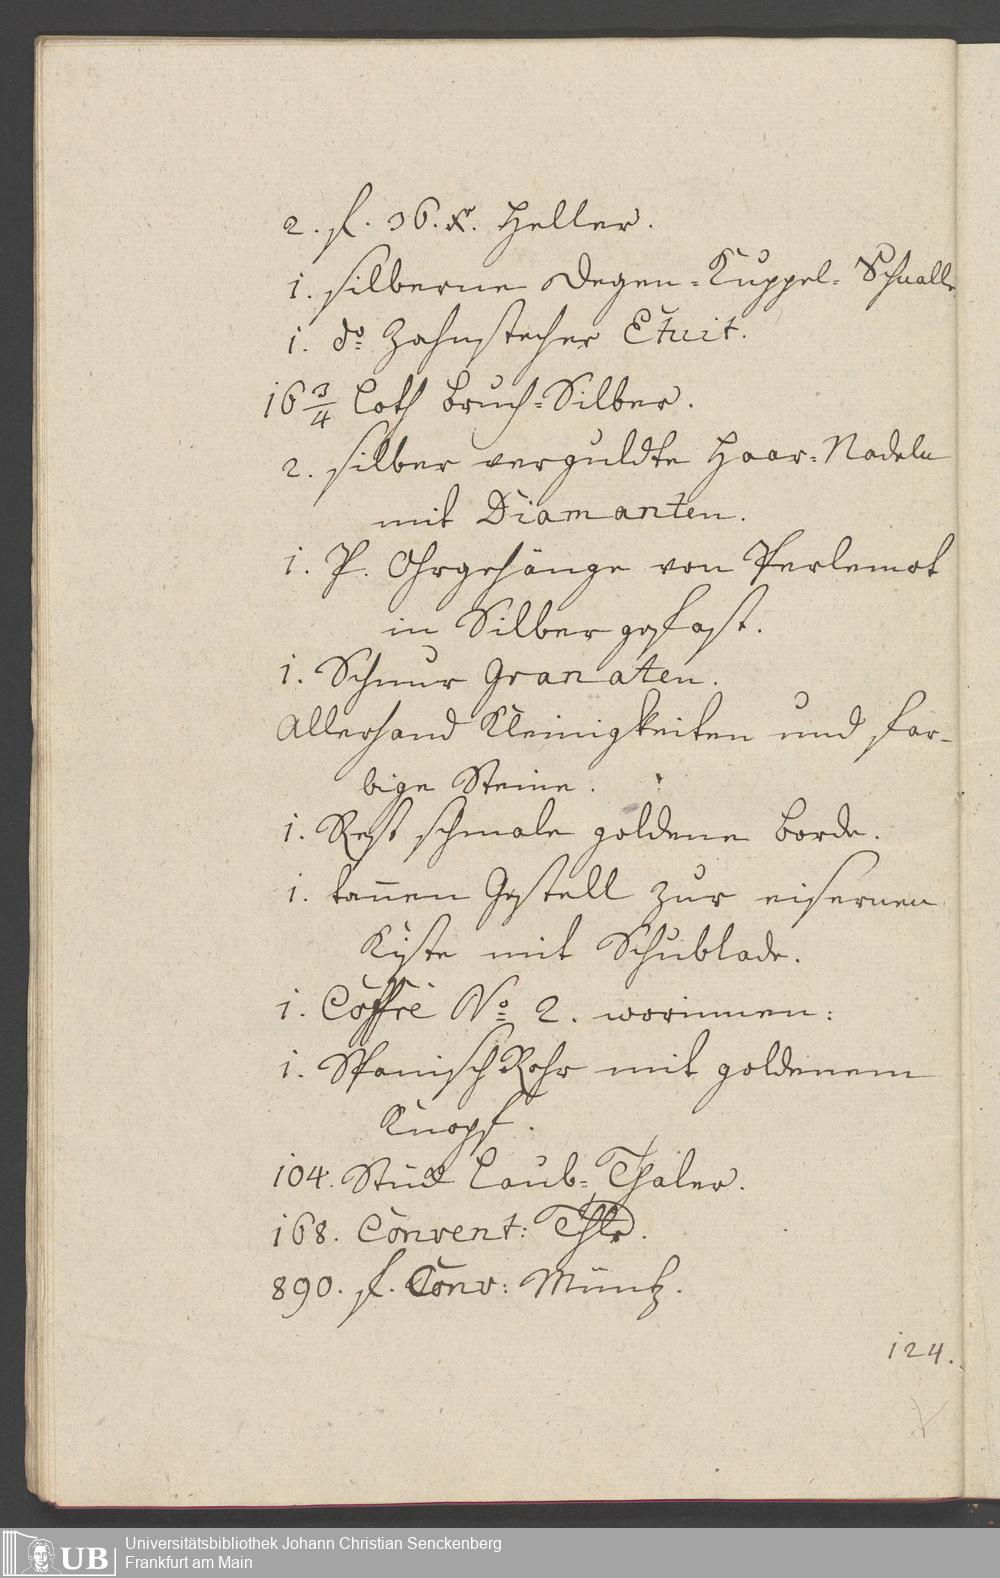 2. fl. 36. xr. Heller.
1. silberne Degen-Kuppel-Schnalle
1. do Zahnstecher Etuit.
16 3/4 Loth Bruch-Silber.
2. silber verguldte Haar-Nadeln
mit Diamanten.
1. P. Ohrgehänge von Perlemot
in Silber gefast.
1. Schnur Granaten.
Allerhand Kleinigkeiten und far-
bige Steine.
1. Rest schmale goldene Borde.
1. tan̄en Gestell zur eisernen
Kiste mit Schublade.
1. Coffre No 2. worinnen:
1. Spanisch Rohr mit goldenem
Knopf.
104. Stück Laub-Thaler.
168. Convent: Thlr.
890. fl. Conv: Müntz.
124.
UB
Universitätsbibliothek Johann Christian Senckenberg
Frankfurt am Main